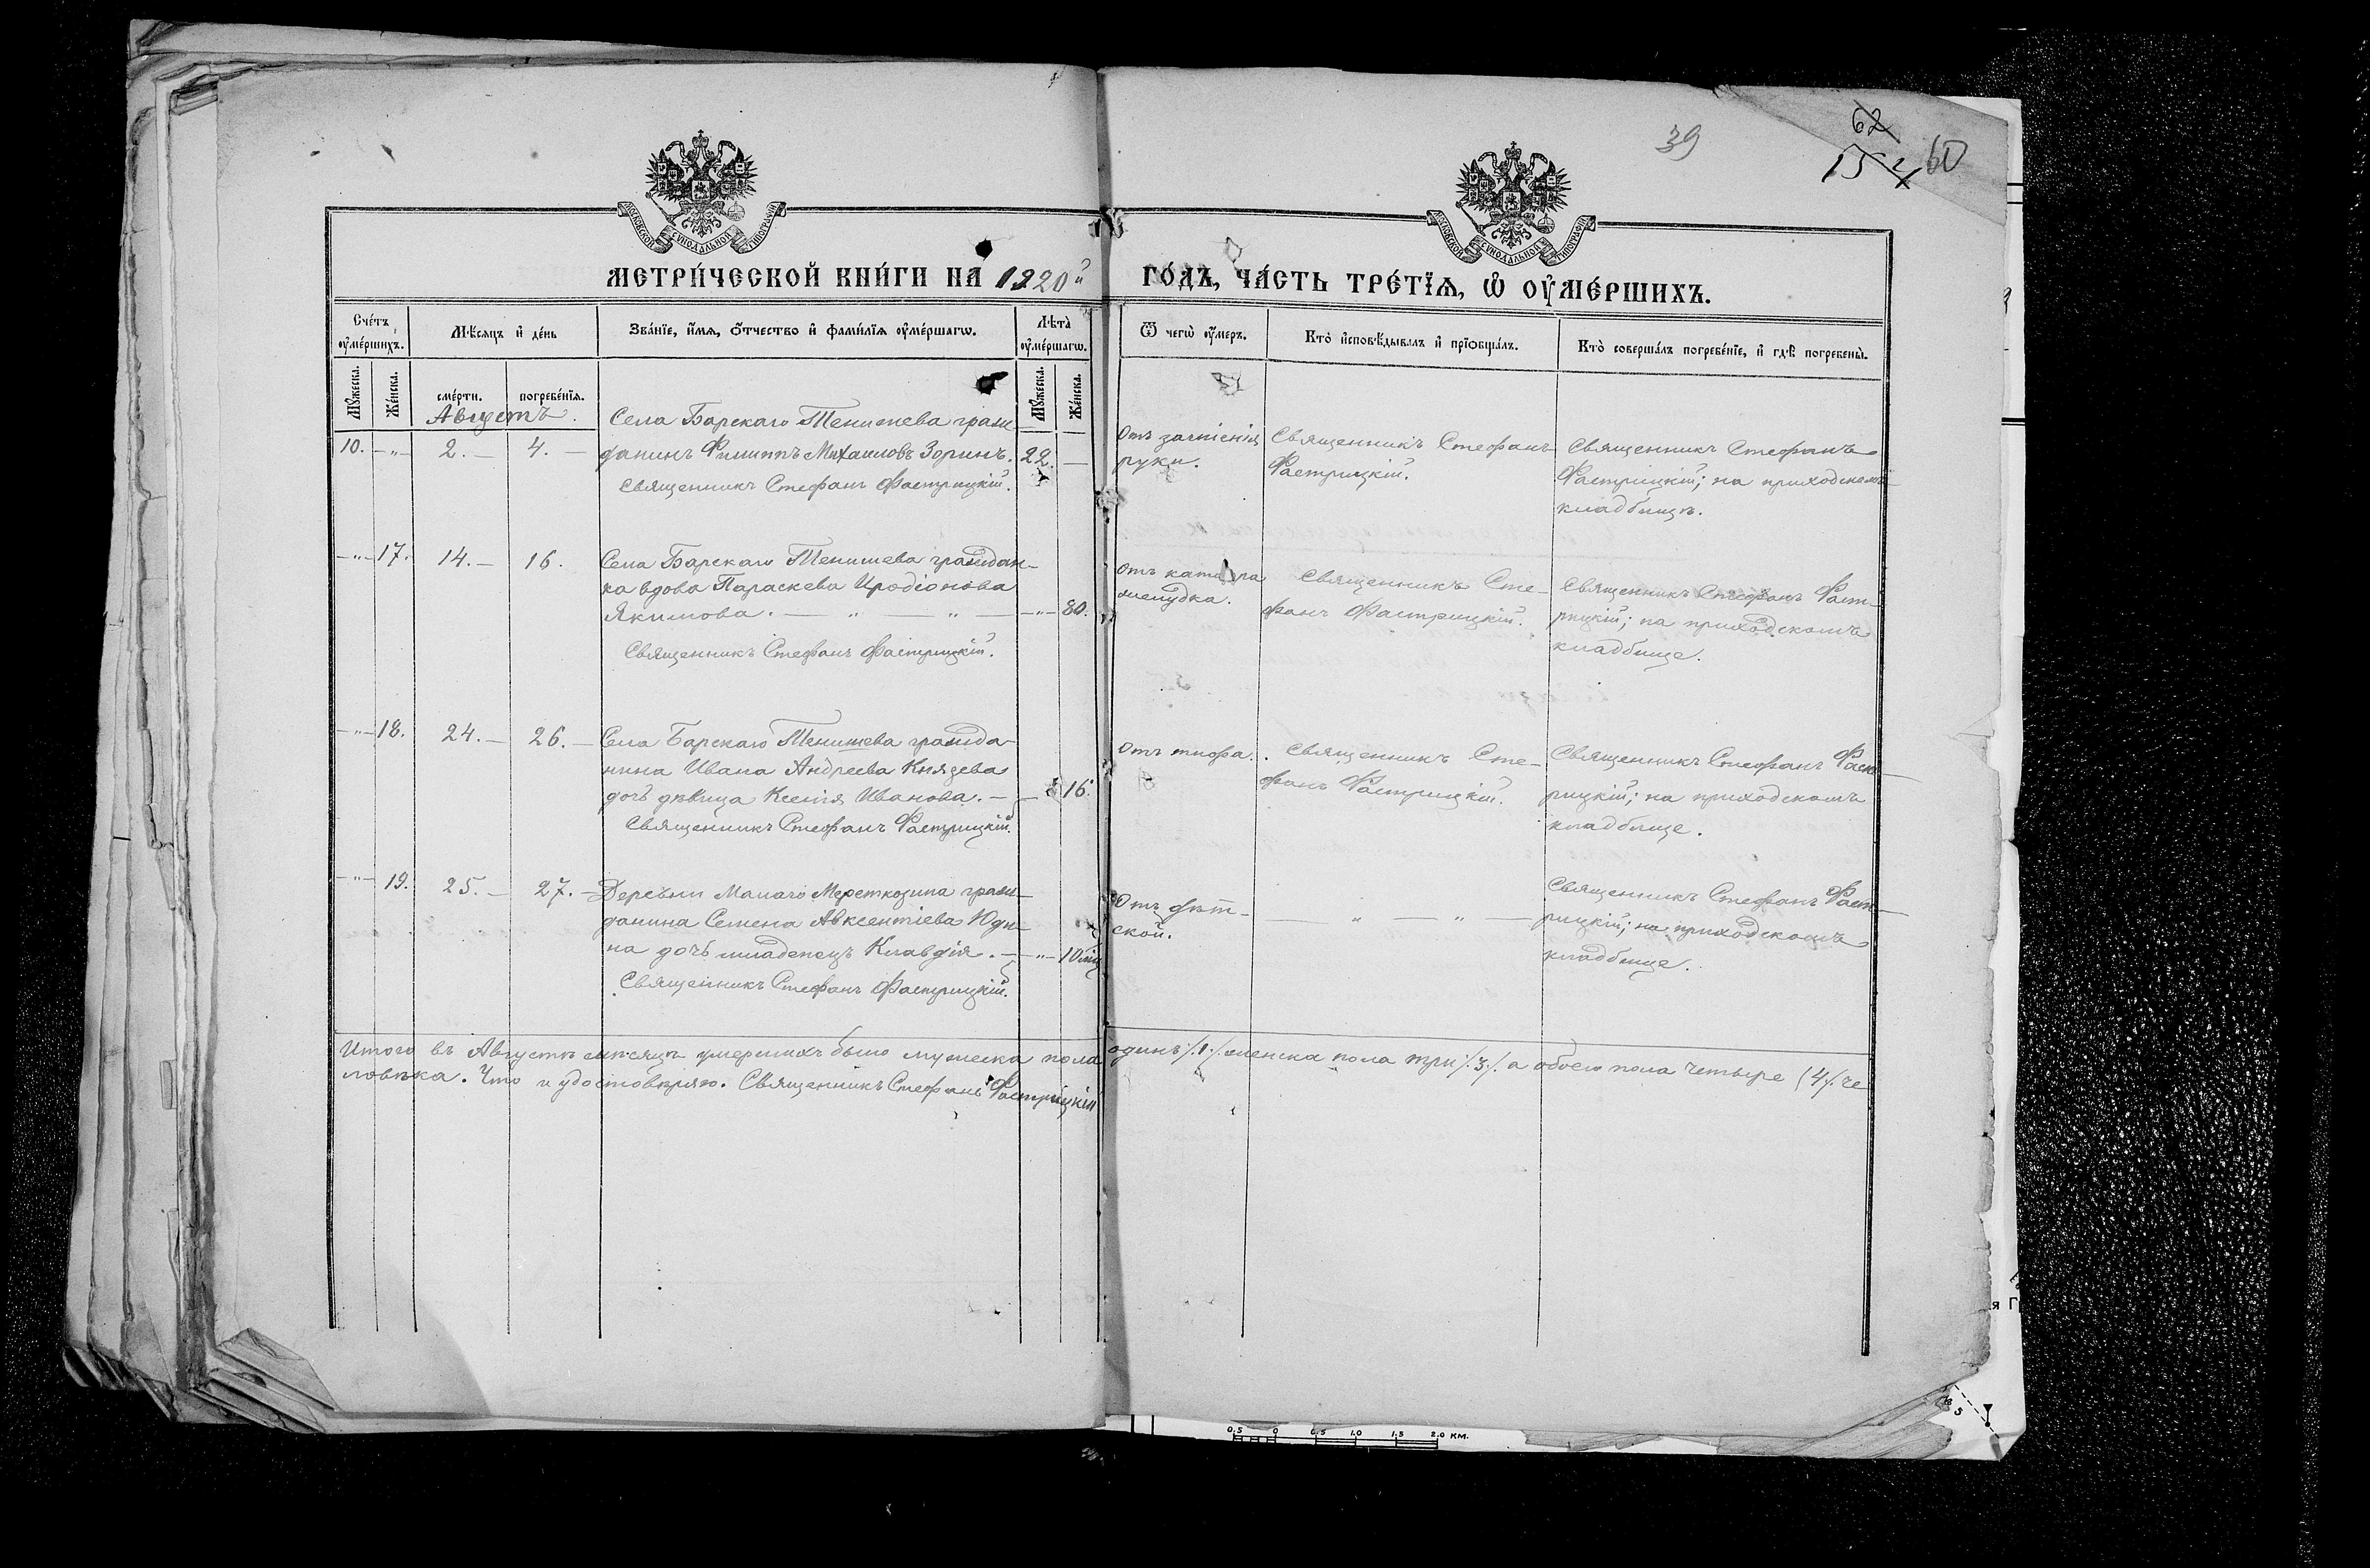 39
62
154
60
МОСКОВСКОЙ СѴНОДАЛЬНОЙ ТИПОГРАФІИ
МОСКОВСКОЙ СѴНОДАЛЬНОЙ ТИПОГРАФІИ
МЕТРИ́ЧЕСКОЙ КНИ́ГИ НА 1920й ГО́ДЪ, ЧА́СТЬ ТРЕ́ТЇѦ, Ѿ ОУ҆МЕ́РШИХЪ.
Сче́тъ оу҆ме́ршихъ.
Мѣ́сѧцъ и҆ де́нь
Зва́нїе, и҆́мѧ, ѻ҆́тчество и҆ фами́лїѧ оу҆ме́ршагѡ.
Лѣ́та оу҆ме́ршагѡ.
Ѿ чегѡ̀ оу҆́меръ.
Кто̀ и҆сповѣ́дывалъ и҆ прїѡбща́лъ.
Кто̀ соверша́лъ погребе́нїе, и҆ гдѣ̀ погребены̀.
Мꙋ́жеска.
Же́нска.
сме́рти.
погребе́нїѧ.
Мꙋ́жеска.
Же́нска.
Августъ.
Села Барскаго Тенишева граж-
10. -"- 2. - 4. - данинъ Филиппъ Михаиловъ Зоринъ. 22. -
Священникъ Стефанъ Фастрицкій.
Отъ
руки.
Священникъ Стефанъ
Фастрицкій.
Священникъ Стефанъ
Фастрицкій; на приходскомъ
кладбищѣ.
-"- 17. 14. - 16. Села Барскаго Тенишева граждан-
ка вдова Параскева Иродіонова
Якимова. - " - " - -"- 80.
Священникъ Стефанъ Фастрицкій.
Отъ катарра
желудка.
Священникъ Сте-
фанъ Фастрицкій.
Священникъ Стефанъ Фаст-
рицкій; на приходскомъ
кладбище.
-"- 18. 24. - 26. - Села Барскаго Тенишева гражда-
нина Ивана Андреева Князева
дочь дѣвица Ксенія Иванова. - 16.
Священникъ Стефанъ Фастрицкій.
Отъ тифа.
Священникъ Сте-
фанъ Фастрицкій.
Священникъ Стефанъ Фаст-
рицкій; на приходскомъ
кладбище.
-"- 19. 25. - 27. - Деревни Малаго Мереткозина граж-
данина Семена Авксентіева Юди-
на дочь младенецъ Клавдія. - -"- 10 мѣс
Священникъ Стефанъ Фастрицкій.
Отъ дѣт-
ской.
" - " -
Священникъ Стефанъ Фаст-
рицкій; на приходскомъ
кладбище.
Итого въ Августѣ мѣсяцѣ умершихъ было мужеска пола одинъ /.1./ женска пола три /.3./ а обоего пола четыре (4/. че
ловѣка. Что и удостовѣряю. Священникъ Стефанъ Фастрицкій
0.5 0 0.5 1.0 1.5 2.0 КМ.